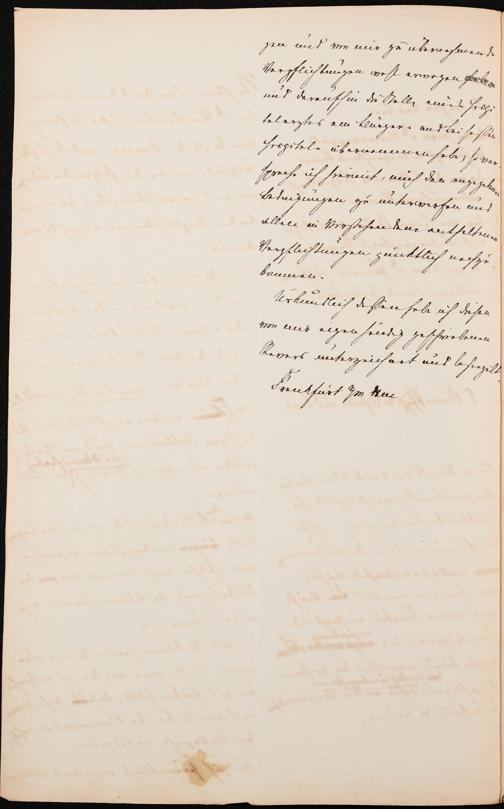 gen und von mir zu übernehmende
Verpflichtungen wohl erwogen habe
und daraufhin die Stelle eines Hospi-
talarztes am Bürger- und Beisassen
Hospitale übernommen habe, so ver-
spreche ich hiermit, mich den angegebenen
Bedingungen zu unterwerfen und
allen in Vorstehendem enthaltenen
Verpflichtungen pünktlich nachzu-
kommen.
Urkundlich dessen habe ich diesen
von mir eigenhändig geschriebenen
Revers unterzeichnet und besiegelt
Frankfurt am